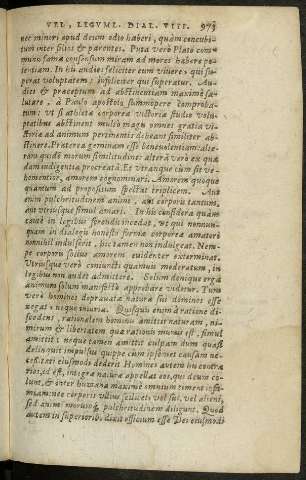 VEL, LEGVM. DIAL. VIII. 973
nec minori apud deum odio haberi, quàm concubi-
tum inter filios & parentes. Puta verò Plato com-
munio famæ consensum miram ad mores habere po-
tentiam. In hu audie: feliciter eum vivere, qui su-
perat voluptatem: infeliciter qui superatur. Au-
dies & præceptum ad abstinentiam maximè sa-
lutare, à Paulo apostolo summopere comproba-
tum: vt si athletæ corporea victoriæ studio volu-
ptatibus abstinent multò magis omnes gratia vi-
ctoriæ ad animum pertinentis debeant similiter ab-
stinere. Præterea geminam esse beneuolentiam: alte-
ram quidē morum similitudine: alterā verò ex qua
dam indigentia procreatā. Et vtranque cum sit ve-
hementior, amorem cognominari. Amorem quoque
quantum ad propositum spectat triplicem. Aut
enim pulchritudinem animi, aut corporis tantum,
aut vtriusque simul amari. In his considera quàm
cautè in legibus ferendis incedat, vt qui nonnun-
quam in dialogis honesto formæ corporeæ amatori
nonnihil indulserit, hic tamen non indulgeat. Nem-
pe corporu solius amorem euidenter exterminat.
Vtriusque verò coniuncti quamuis moderatum, in
legibus non audet admittere. Solum denique erga
animum solum manifestò approbare videtur. Tum
verò homines deprauatæ naturæ sui dominos esse
negat: neque iniuria. Quisquis enim à ratione di-
scedens, rationalem hominis amittit naturam, ni-
mirum & libertatem quæ rationu munus est, simul
amittit: neque tamen amittit culpam dum quasi
delinquit impulsus quippe cum ipsemet causam ne-
cessitati eiusmodi dederit Homines autem his contra
rios, id est, integræ naturæ appellat eos, qui deum co-
lunt, & inter humana maximè omnium timent infa-
miam: nec corporis vllius scilicet vel sui, vel alieni,
sed animi morumq́; pulchritudinem diligunt. Quod
autem in superiorib. dixit officium esse Dei eiusmodi